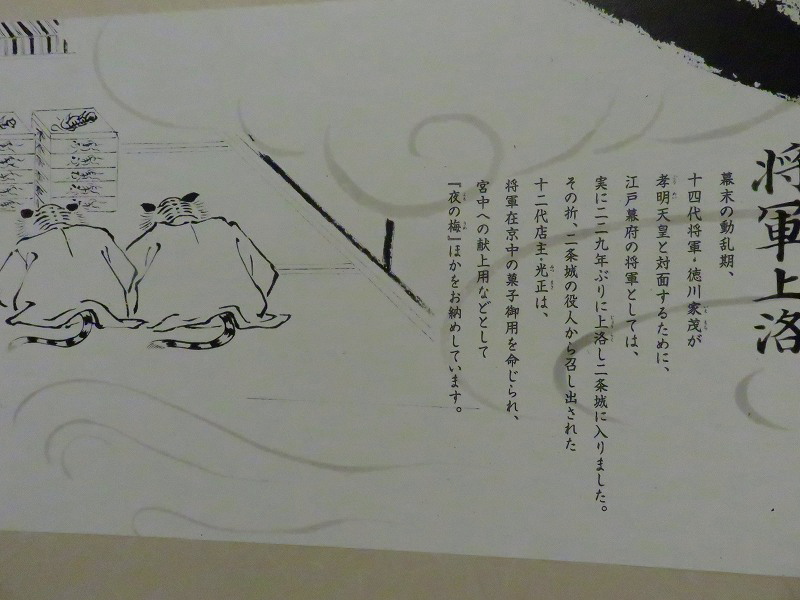 将軍上洛
幕末の動乱期、
十四代将軍・徳川家茂が
孝明天皇と対面するために、
江戸幕府の将軍としては、
実に二二九年ぶりに上洛し二条城に入りました。
その折、二条城の役人から召し出された
十二代店主・光正は、
将軍在京中の菓子御用を命じられ、
宮中への献上用などとして
『夜の梅』ほかをお納めしています。